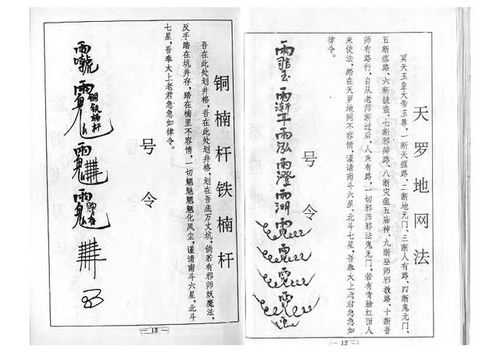 天罗地网法
冥天玉皇大帝玉尊，一断天瘟路，二断地无门，三断人有路，四断鬼无门，
五断瘟路，六断披盗，七断邪师路，八断灾瘟五庙神，九断巫师邪教路，十断吾
师有路行，自从老师断过后，人来有路，一切邪师邪法鬼无门，若有青脸红面人
来使法，踏在天罗地网不容情，谨请南斗六星，北斗七星，吾奉太上老君急急如
律令。
号令
— 12 —
铜楠杆铁楠杆
吾在此处划井格，吾在此处划井格，吾在底万丈坑，倘若有邪师妖魔法，
反手踏在坑井存，踏在楠里不容情，一切魍魉魑魅化风尘，谨请南斗六星，北斗
七星，吾奉太上老君急急如律令。
号令
— 13 —